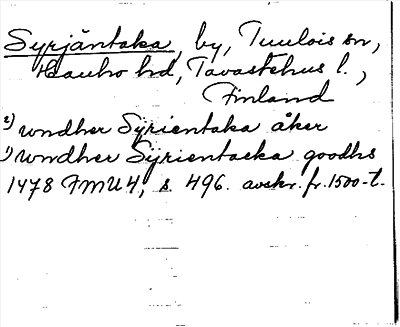 Syrjäntaka, by, Tuulois sn,
Hauho hd, Tavastehus l.,
Finland
2) wndher Syrientaka åker
1) wndher Syrientacka goodhs
1478 FMU 4, s. 496. avskr. fr. 1500-t.